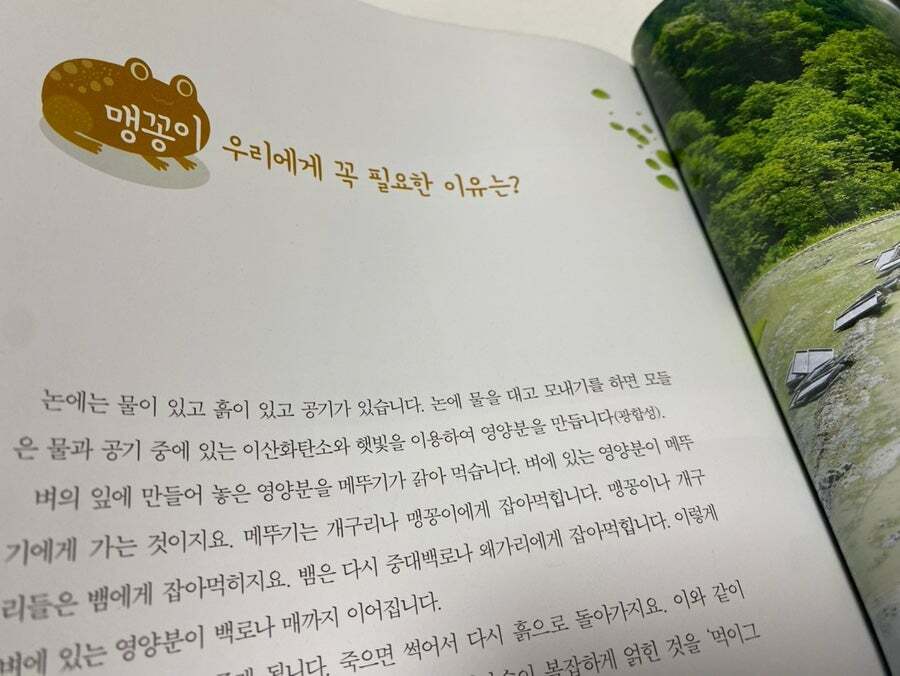 맹꽁이
우리에게 꼭 필요한 이유는?
논에는 물이 있고 흙이 있고 공기가 있습니다. 논에 물을 대고 모내기를 하면 모들
은 물과 공기 중에 있는 이산화탄소와 햇빛을 이용하여 영양분을 만듭니다(광합성).
벼의 잎에 만들어 놓은 영양분을 메뚜기가 갉아 먹습니다. 벼에 있는 영양분이 메뚜
기에게 가는 것이지요. 메뚜기는 개구리나 맹꽁이에게 잡아먹힙니다. 맹꽁이나 개구
리들은 뱀에게 잡아먹히지요. 뱀은 다시 중대백로나 왜가리에게 잡아먹힙니다. 이렇게
벼에 있는 영양분이 백로나 매까지 이어집니다.
됩니다. 죽으면 썩어서 다시 흙으로 돌아가지요. 이와 같이
복잡하게 얽힌 것을 '먹이그